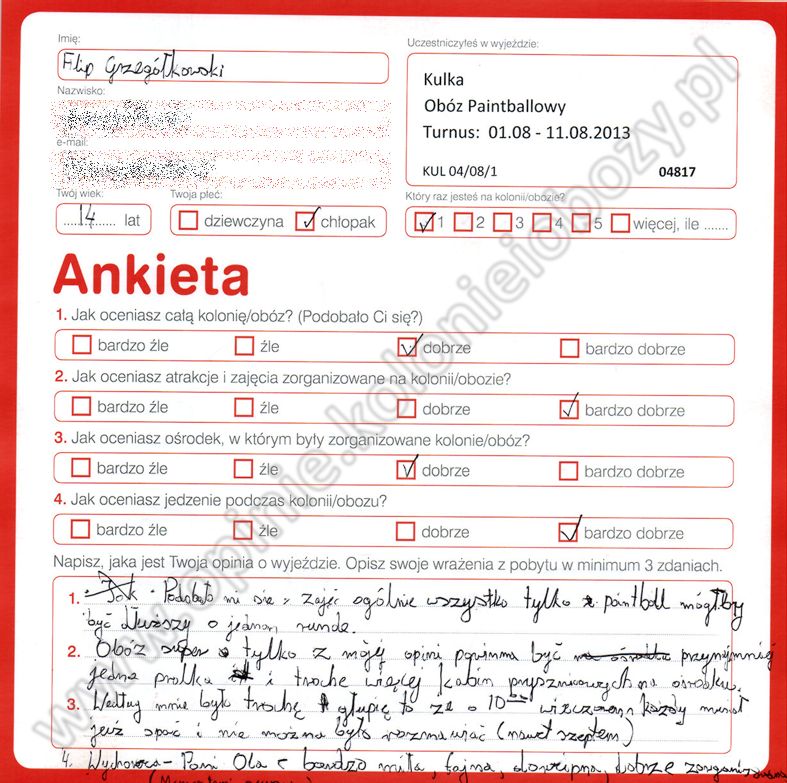 Imię:
Filip Grzegółkowski
Nazwisko:
e-mail:
Twój wiek:
14 lat
Twoja płeć:
dziewczyna chłopak
Uczestniczyłeś w wyjeździe:
Kulka
Obóz Paintballowy
Turnus: 01.08 - 11.08.2013
KUL 04/08/1 04817
Który raz jesteś na kolonii/obozie?
1 2 3 4 5 więcej, ile .......
Ankieta
1. Jak oceniasz całą kolonię/obóz? (Podobało Ci się?)
bardzo źle źle dobrze bardzo dobrze
2. Jak oceniasz atrakcje i zajęcia zorganizowane na kolonii/obozie?
bardzo źle źle dobrze bardzo dobrze
3. Jak oceniasz ośrodek, w którym były zorganizowane kolonie/obóz?
bardzo źle źle dobrze bardzo dobrze
4. Jak oceniasz jedzenie podczas kolonii/obozu?
bardzo źle źle dobrze bardzo dobrze
Napisz, jaka jest Twoja opinia o wyjeździe. Opisz swoje wrażenia z pobytu w minimum 3 zdaniach.
1. Podobało mi się z zajęć ogólnie wszystko tylko paintball mógłby
być dłuższy o jedną rundę.
2. Obóz super tylko z mojej opini powinna być przynajmniej
jedna pralka i troche więcej kabin prysznicowych na ośrodku.
3. Według mnie było trochę głupie to ze o 10 wieczorem każdy musiał
jeuż spać i nie można było rozmawiać (nawet szeptem)
4. Wychowawca - Pani Ola bardzo miła, fajna, dowcipna, dobrze
www.opinie.kolonieiobozy.pl